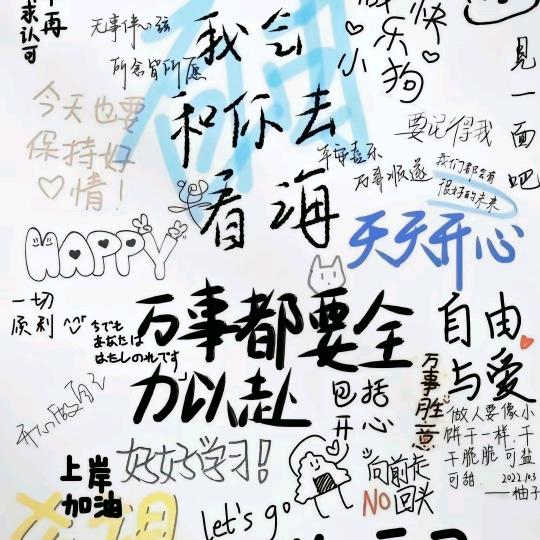 不再
求认可
无事伴心弦
所念皆所愿
我会
和你去
看海
做
快
乐
小狗
见一面吧
今天也要
保持好
♡情！
要记得我
平安喜乐
万事顺遂
我们都会有
很好的未来
HAPPY
天天开心
一切
顺利
ちでも
あなたは
はたしのれです
万事都要全
力以赴
包括
开心
自由
与爱
万事胜意
开心做自己
好好学习！
上岸
加油
做人要像小
饼干一样，干
干脆脆 可盐
可甜
2022.10.3
——柚子
向前走
NO回头
let's go